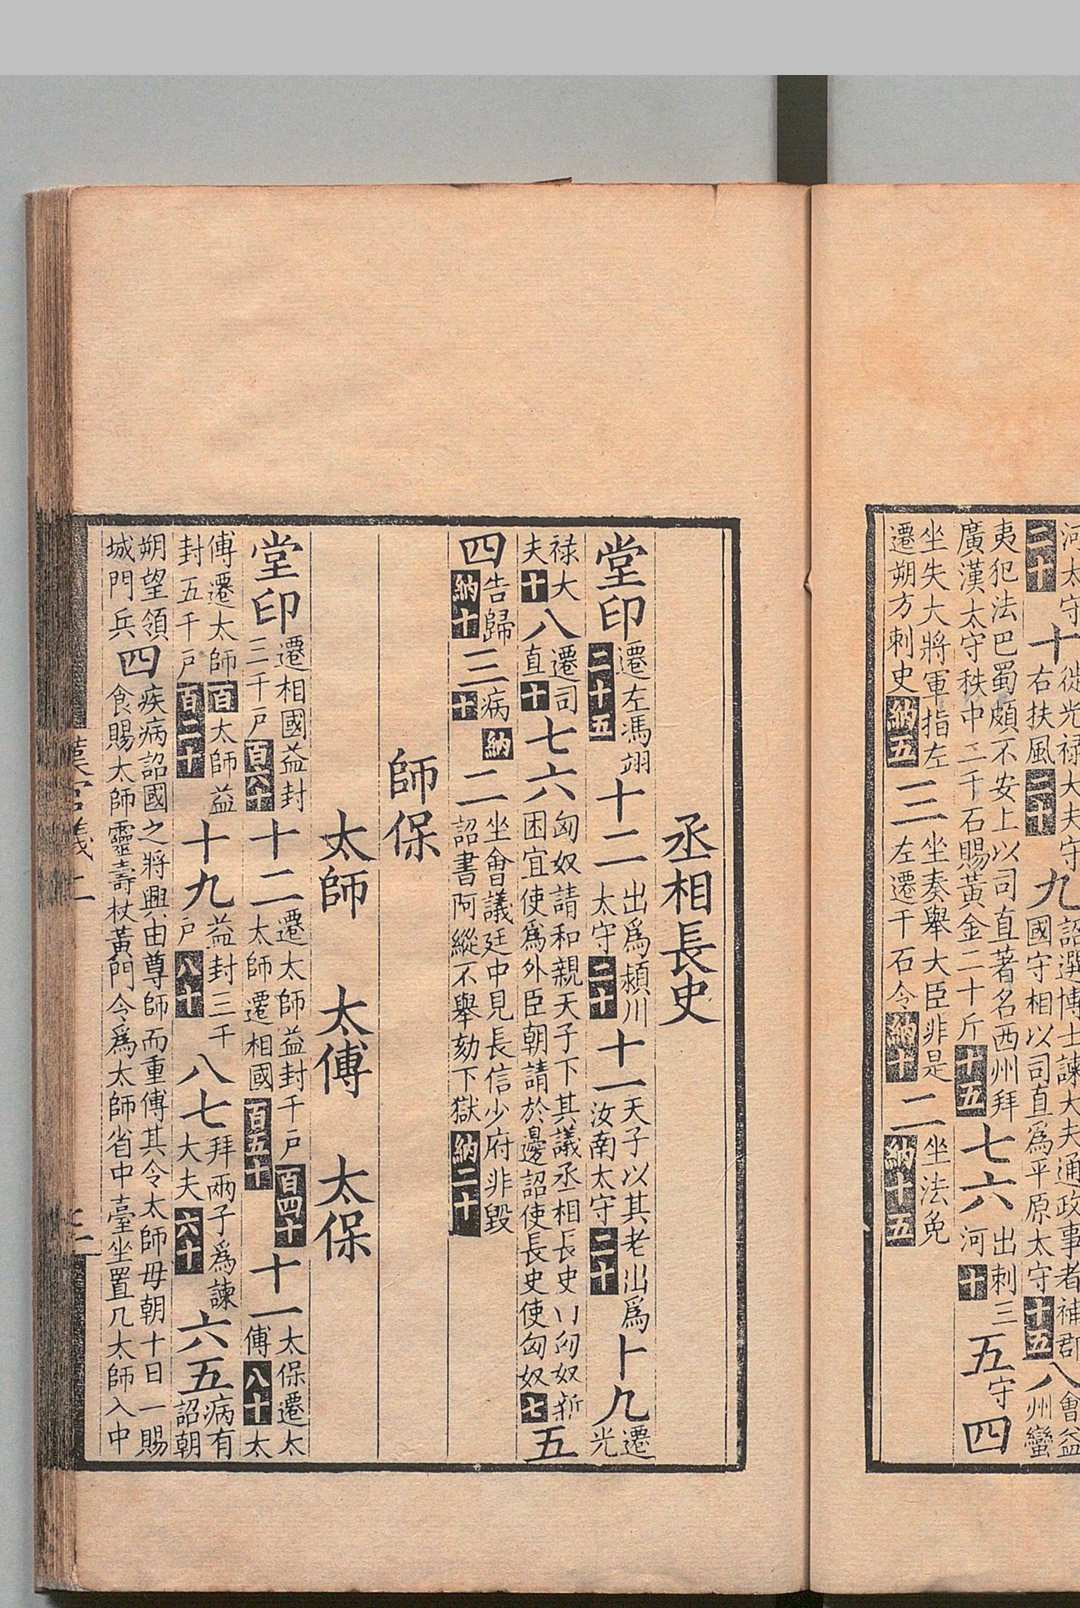 河太守二十十徙光祿大夫守九詔選博士諫大夫通政事者補郡國守相以司直爲平原太守十五八會益州蠻
夷犯法巴蜀頗不安上以司直著名西州拜廣漢太守秩中二千石賜黃金二十斤十五七六出刺三河十五守四
坐失大將軍指左遷朔方刺史納五三坐奏舉大臣非是左遷千石令納十二坐法免納十五
丞相長史
堂印遷左馮翊二十五十二出爲潁川太守二十十一天子以其老出爲汝南太守二十十九遷光
祿大夫十八遷司直十七六匈奴請和親天子下其議丞相長史曰匈奴新困宜使爲外臣朝請於邊詔使長史使匈奴七五
四告歸納十三病納十二坐會議廷中見長信少府非毀詔書阿縱不舉劾下獄納二十
師保
太師 太傅 太保
堂印遷相國益封三千戶百六十十二遷太師益封千戶百四十太師遷相國百五十十一太保遷太傅八十太
傅遷太師百太師益封五千戶百二十十九益封三千戶八十八七拜兩子爲諫大夫六十六五病有詔朝
朔望領城門兵四疾病詔國之將興由尊師而重傅其令太師毋朝十日一賜食賜太師靈壽杖黃門令爲太師省中臺坐置几太師入中
漢官儀